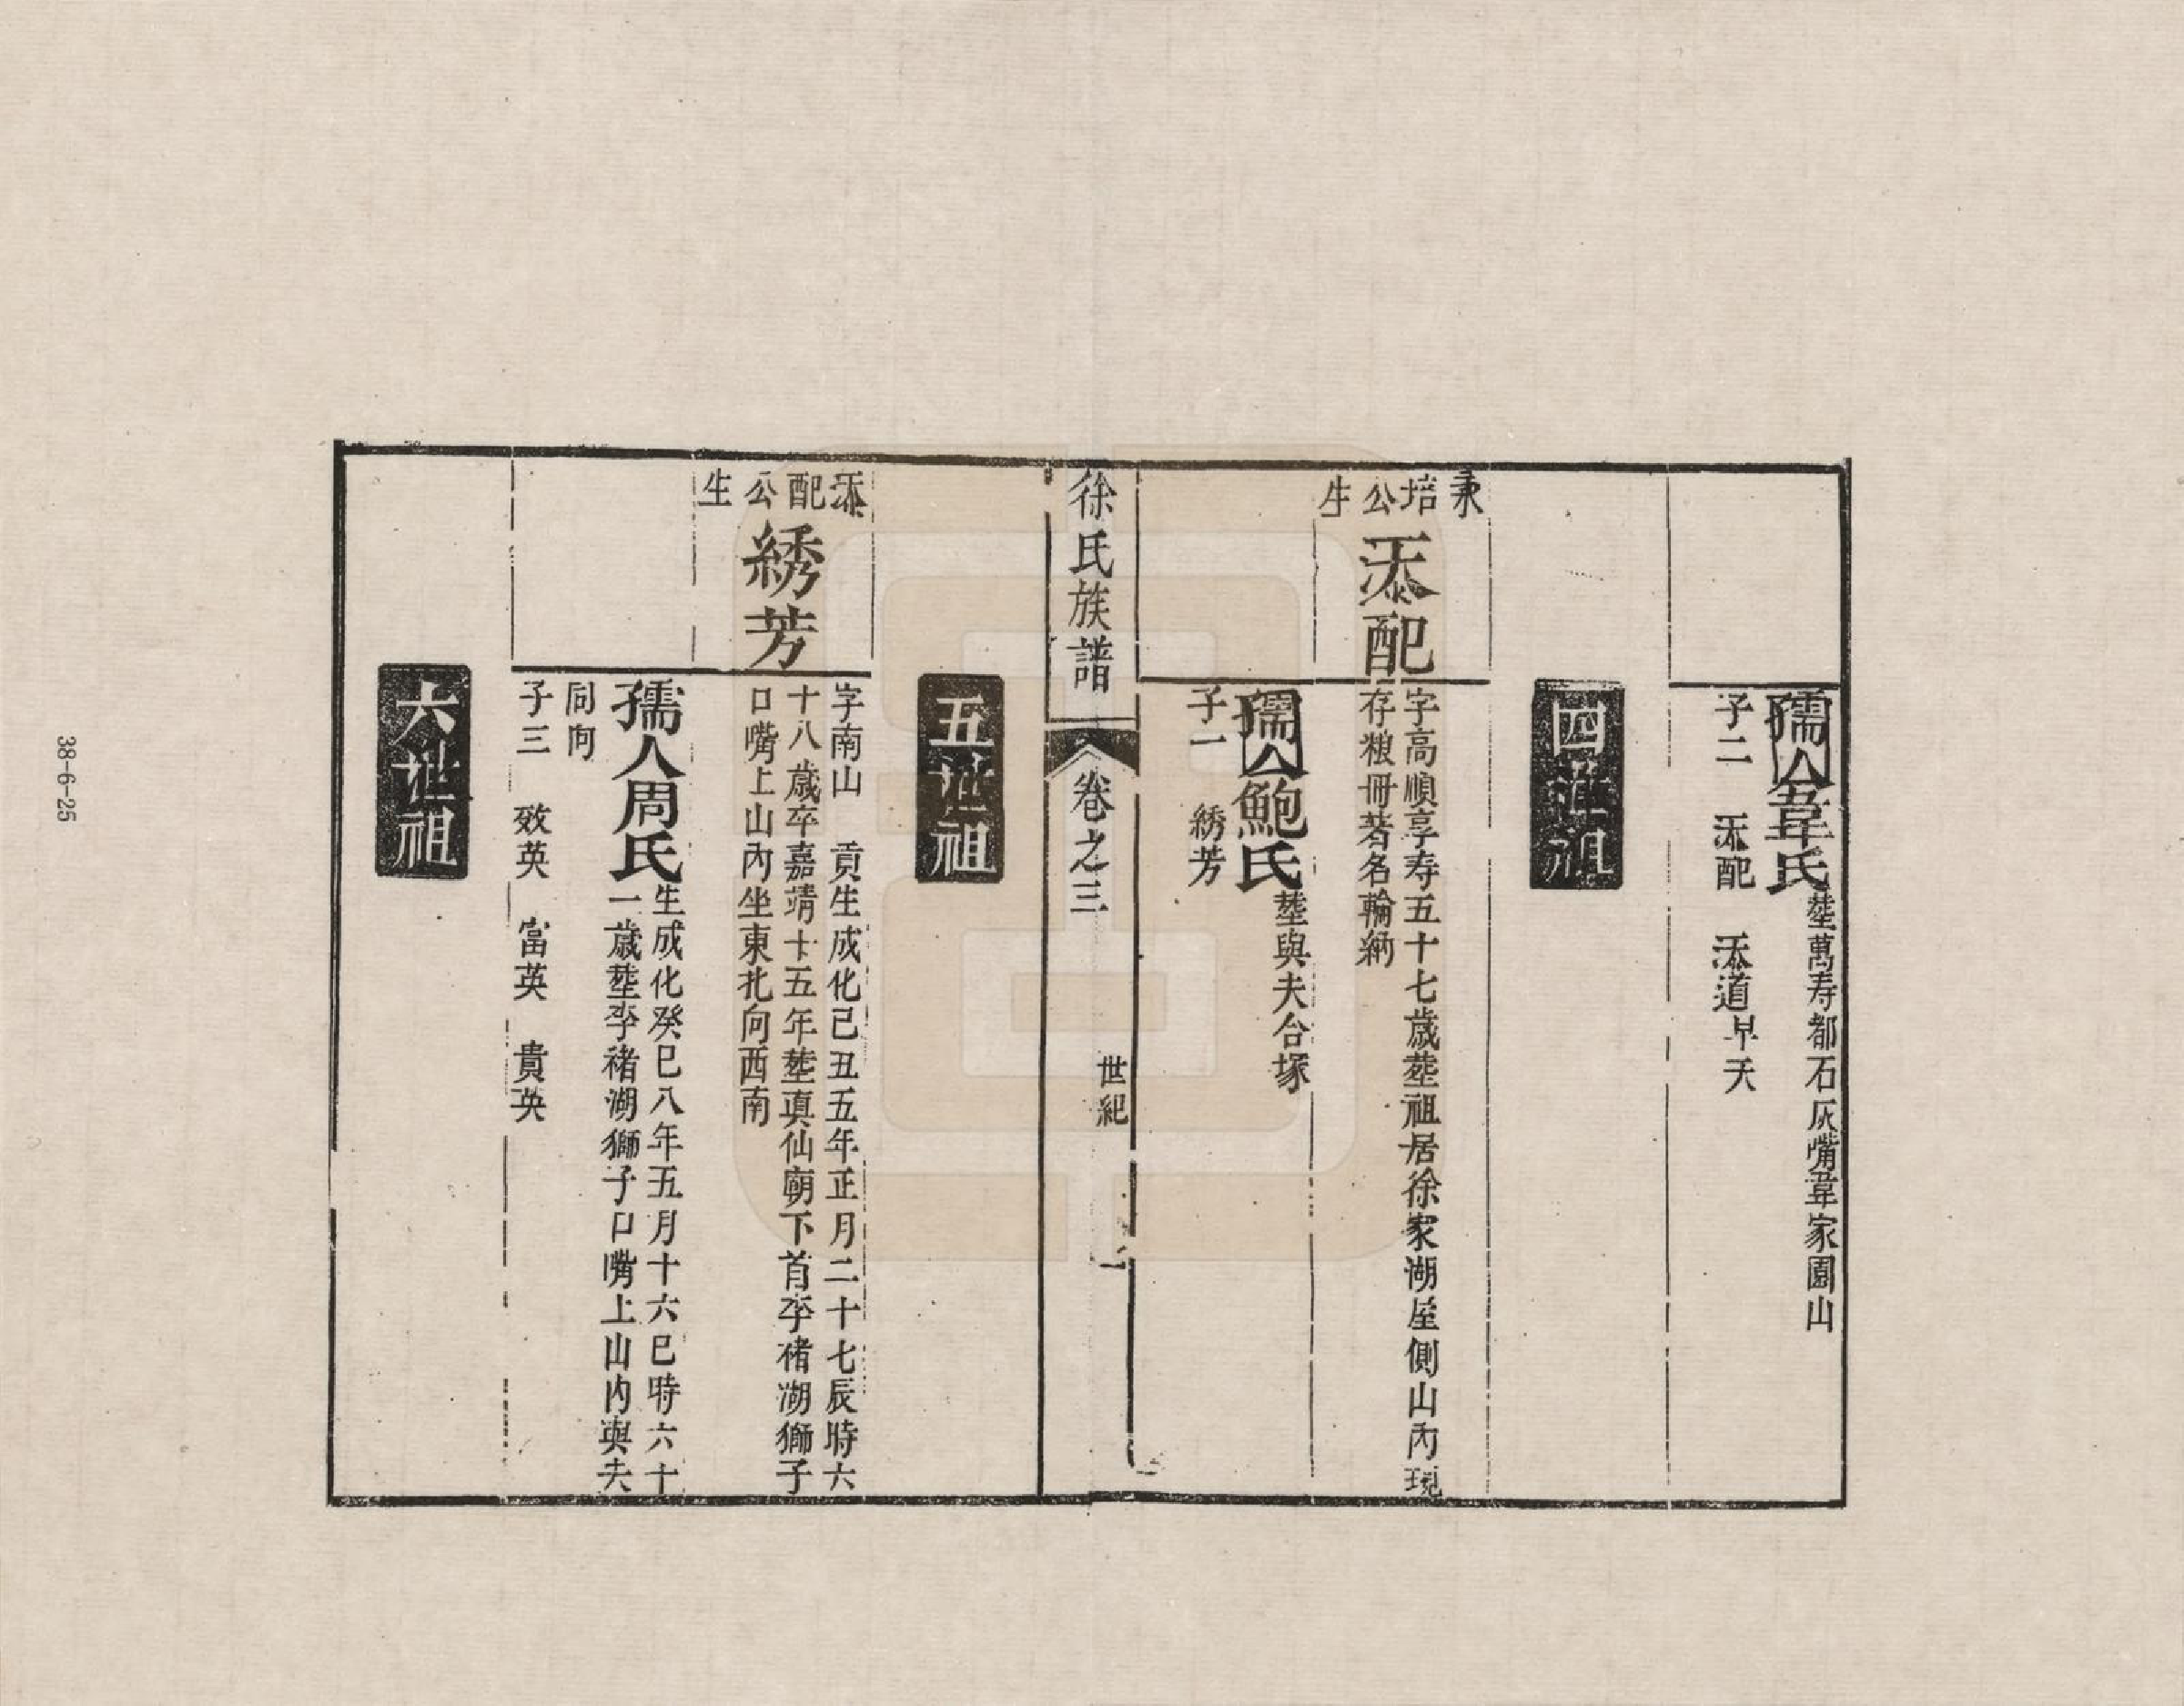 孺人韋氏
塟萬寿都石灰嘴韋家園山
子二　添配　添道早夭
四世祖
秉培公生
添配
字高順享寿五十七歲塟祖居徐家湖屋側山內現
存粮冊著名輪納
孺人鮑氏
塟與夫合塚
子一　綉芳
徐氏族譜
卷之三
世紀
五世祖
添配公生
綉芳
字南山　貢生成化己丑五年正月二十七辰時六
十八歲卒嘉靖十五年塟真仙廟下首李褚湖獅子
口嘴上山內坐東北向西南
孺人周氏
生成化癸巳八年五月十六巳時六十
一歲塟李褚湖獅子口嘴上山內與夫
同向
子三　效英　富英　貴英
六世祖
38-6-25